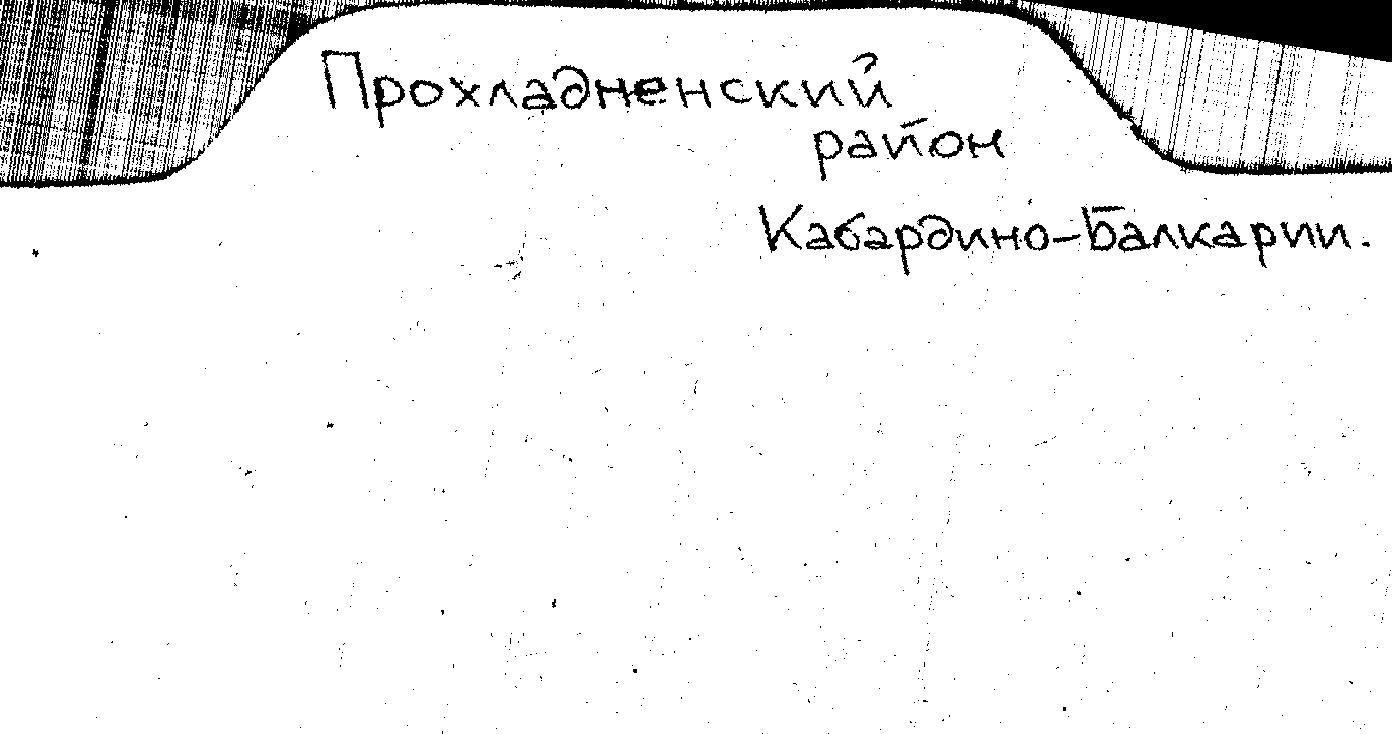 Прохладненский
район
Кабардино-Балкарии.